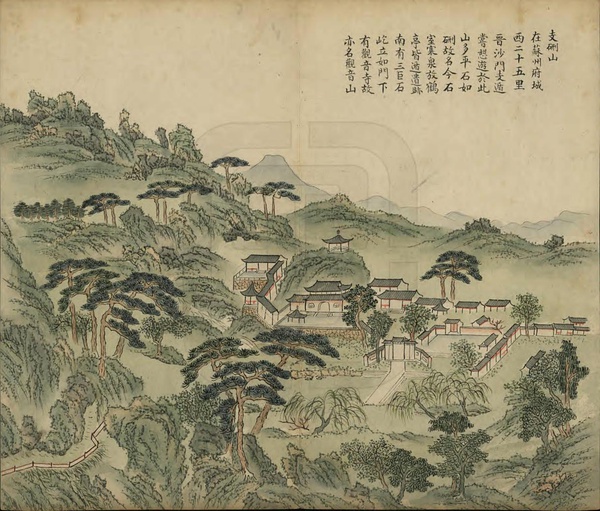 支硎山
在蘇州府城
西二十五里
晉沙門支遁
嘗憩遊於此
山多平石如
硎故名今石
室寒泉放鶴
亭皆遁遺跡
南有三巨石
屹立如門下
有觀音寺故
亦名觀音山